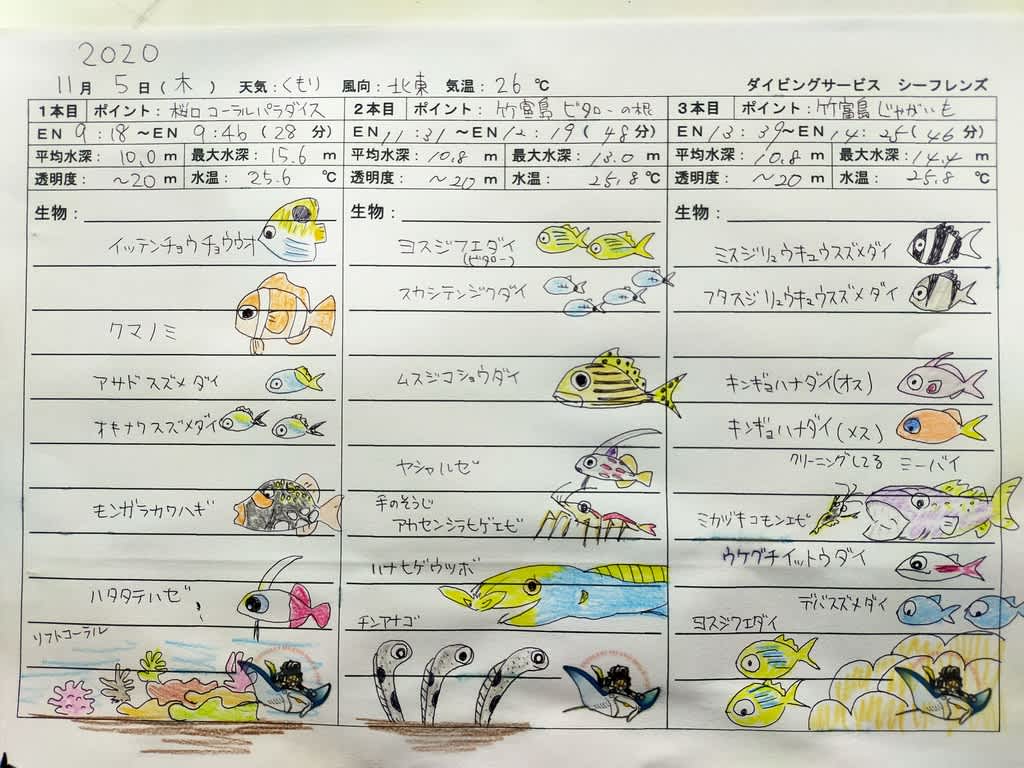 2020
11月 5日(木) 天気:くもり 風向:北東 気温:26℃ ダイビングサービス シーフレンズ
1本目 ポイント:桜口 コーラルパラダイス
EN 9:18～EN 9:46(28分)
平均水深:10.0m 最大水深:15.6m
透明度:～20m 水温:25.6℃
生物:
イッテンチョウチョウウオ
クマノミ
アサドスズメダイ
オキナワスズメダイ
モンガラカワハギ
ハタタテハゼ
ソフトコーラル
2本目 ポイント:竹富島 ビタローの根
EN 11:31～EN 12:19(48分)
平均水深:10.8m 最大水深:13.0m
透明度:～20m 水温:25.8℃
生物:
ヨスジフエダイ
(ビタロー)
スカシテンジクダイ
ムスジコショウダイ
ヤシャハゼ
手のそうじ
アカセンシラヒゲエビ
ハナヒゲウツボ
チンアナゴ
3本目 ポイント:竹富島 じゃがいも
EN 13:39～EN 14:25(46分)
平均水深:10.8m 最大水深:14.4m
透明度:～20m 水温:25.8℃
生物:
ミスジリュウキュウスズメダイ
フタスジリュウキュウスズメダイ
キンギョハナダイ(オス)
キンギョハナダイ(メス)
クリーニングしてる ミーバイ
ミカヅキコモンエビ
ウケグチイットウダイ
デバスズメダイ
ヨスジフエダイ